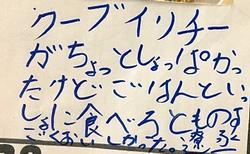 クーブイリチー
がちょっとしょっぱかっ
たけどごはんとい、
しょに食べるとものす
ごくおいしかった。